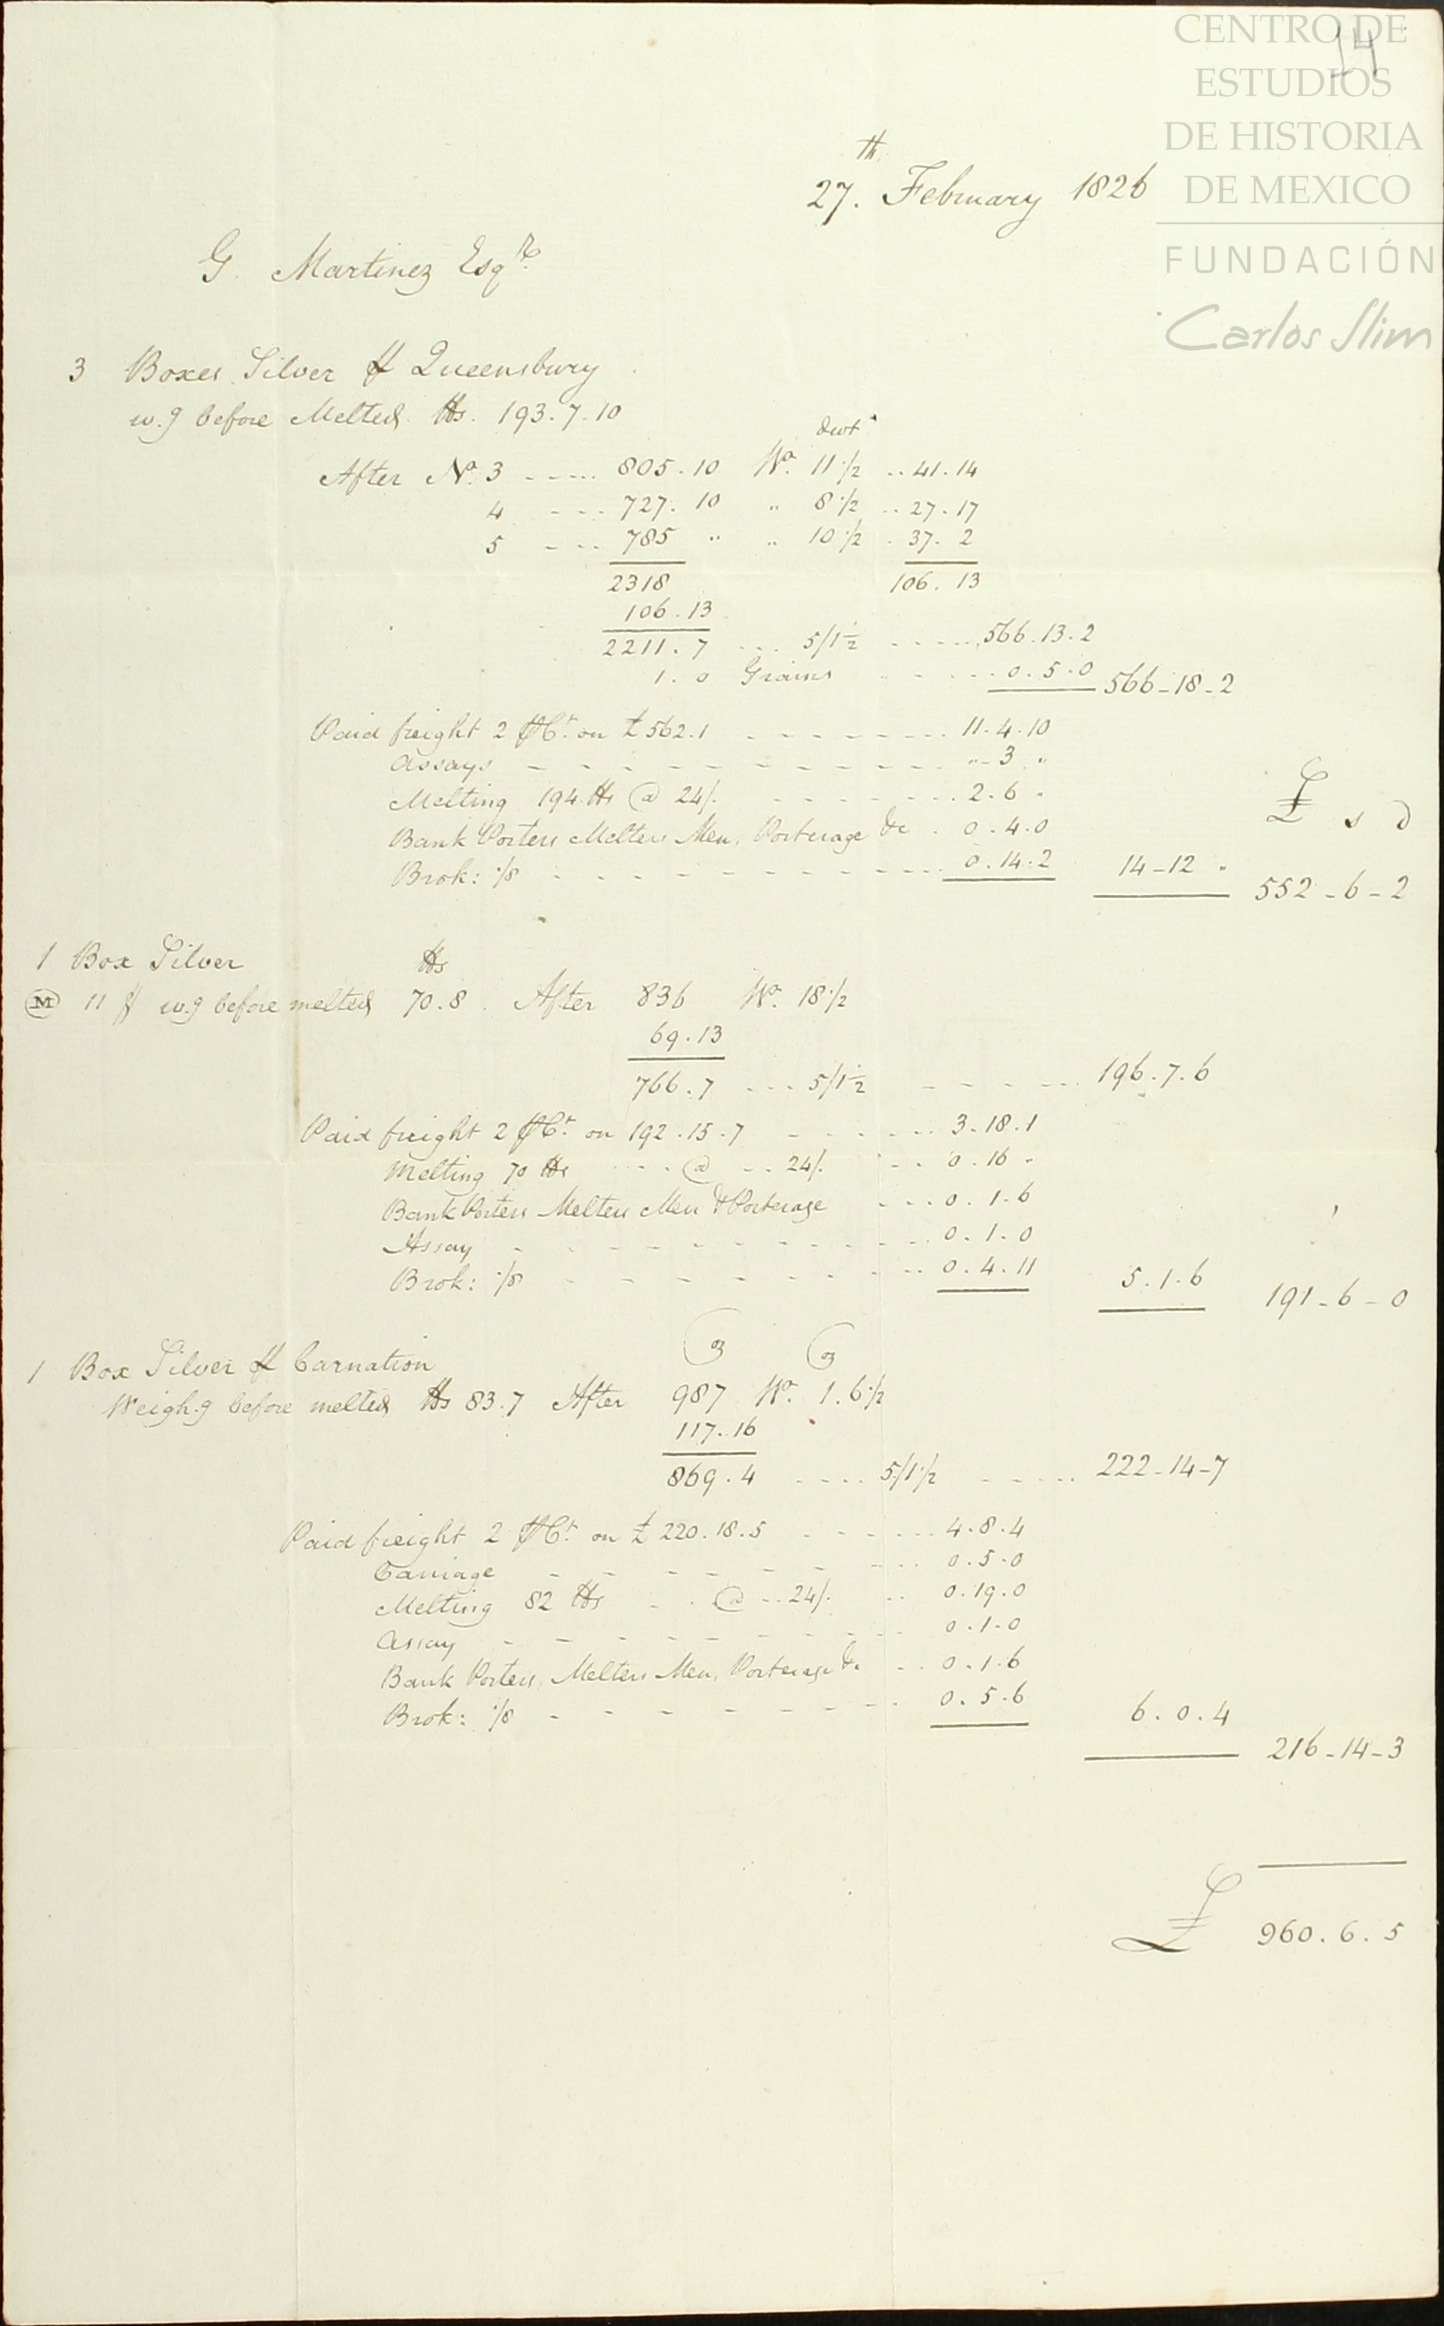 CENTRO DE
ESTUDIOS
DE HISTORIA
DE MEXICO
FUNDACIÓN
Carlos Slim
14
27.th February 1826
G. Martinez Esqr.
3 Boxes Silver ⅌ Queensbury
w.g before Melted lbs. 193.7.10
dwts
After No. 3 ..... 805.10 Wo. 11 1/2 .. 41.14
4 .... 727.10 " 8 1/2 .. 27.17
5 .... 785 " " 10 1/2 . 37.2
2318 106.13
106.13
2211.7 ... 5/1 1/2 ..... 566.13.2
1.0 Grains ..... 0.5.0 566-18-2
Paid freight 2 ⅌Ct. on £562.1 ........ 11.4.10
Assays - - - - - - - - - - " 3 "
Melting 194 lbs @ 24/. ....... 2.6 "
£ s d
Bank Porters Melters Men, Porterage &c . 0.4.0
Brok: 1/8 ........... 0.14.2 14-12 " 552-6-2
1 Box Silver lbs
M 11 ⅌ w.g before melted 70.8. After 836 Wo. 18 1/2
69.13
766.7 ... 5/1 1/2 ...... 196.7.6
Paid freight 2 ⅌Ct. on 192.15.7 ...... 3.18.1
Melting 70 lbs ... @ .. 24/. ... 0.16 "
Bank Porters Melters Men & Porterage ... 0.1.6
Assay - - - - - - - - - 0.1.0
Brok: 1/8 - - - - - - - 0.4.11 5.1.6 191-6-0
oz oz
1 Box Silver ⅌ Carnation
Weigh.g before melted lbs 83.7 After 987 Wo. 1.6 1/2
117.16
869.4 .... 5/1 1/2 ..... 222-14-7
Paid freight 2 ⅌Ct. on £220.18.5 ...... 4.8.4
Carriage - - - - - - - 0.5.0
Melting 82 lbs .. @ .. 24/. .. 0.19.0
Assay - - - - - - - - 0.1.0
Bank Porters, Melters Men, Porterage &c .. 0.1.6
Brok: 1/8 - - - - - - - 0.5.6 6.0.4
216-14-3
£ 960.6.5